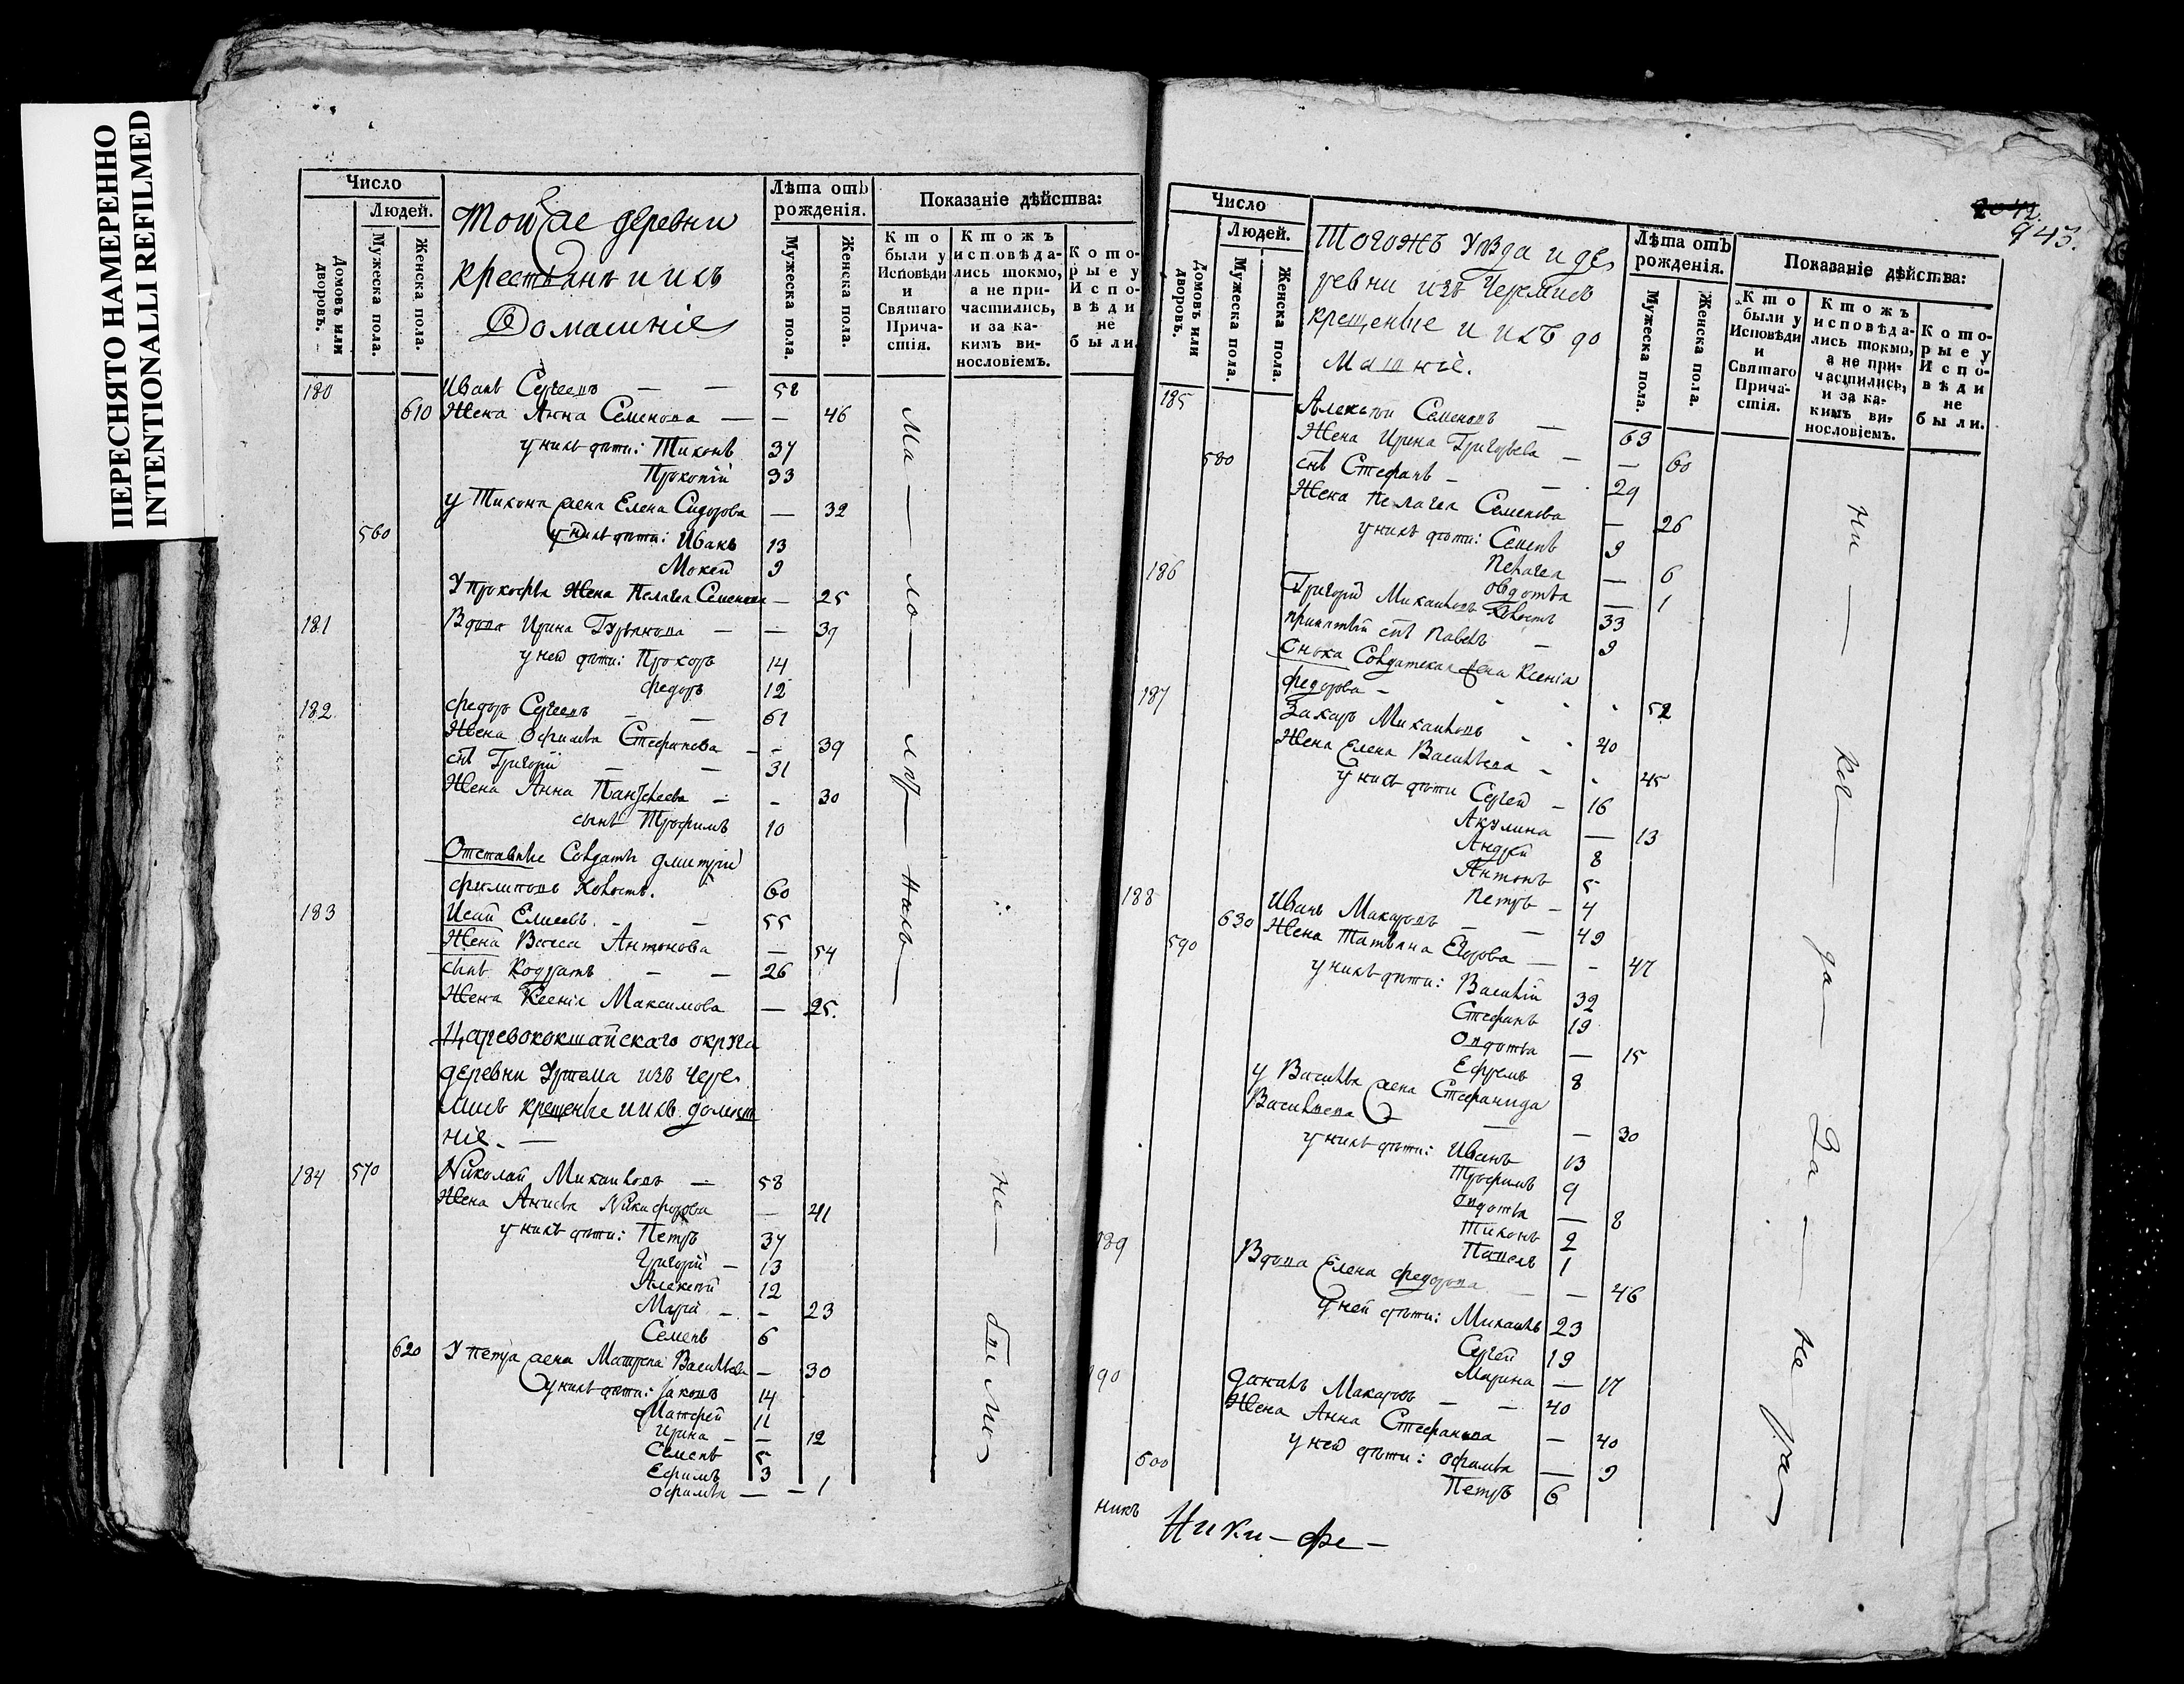 ПЕРЕСНЯТО НАМЕРЕННО
INTENTIONALLI REFILMED
Число
Людей.
Домовъ или дворовъ.
Мужеска пола.
Женска пола.
Лѣта отъ рожденія.
Мужеска пола.
Женска пола.
Показаніе дѣйства:
Кто были у Исповѣди и Святаго Прича-стія.
Ктожъ исповѣда-лись токмо, а не при-частились, и за ка-кимъ ви-нословіемъ.
Кото-рые у Испо-вѣди не были.
Тойже деревни
крестьяне и ихъ
Домашніе
180 Иванъ Сергеевъ — — 58
610 Жена Анна Семенова — — 46
у нихъ дѣти: Тихонъ 37
Прокопій 33
у Тихона жена Елена Сидорова — 32
560 у нихъ дѣти: Иванъ 13
Мокей 9
У Прокофья Жена Пелагея Семенова — 25
181 Вдова Ирина Гурьянова — — 39
у ней дѣти: Прохоръ 14
Федоръ 12
182 Федоръ Сергеевъ — — 61
Жена Офимья Стефанова — - 39
снъ Григорій — — 31
Жена Анна Пантелеева — - 30
сынъ Трофимъ 10
Отставные Солдатъ Дмитрій
Филиповъ холостъ. 60
183 Исай Елисеевъ - - 55
Жена Васса Антонова — 54
сынъ Кодратъ — — 26
Жена Ксенія Максимова — 25.
Царевококшайскаго округа
деревни Уртема изъ чере
мисъ крещеные и ихъ домаш
ніе. —
184 570 Николай Михайловъ — 58
Жена Анисья Никифорова — 41
у нихъ дѣти: Петръ 37
Григорій — 13
Алексѣй 12
Марія — - 23
Семенъ 6
620 У Петра жена Матрена Васильева — 30
у нихъ дѣти: Яковъ 14
Матфей 11
Ирина — — 12
Семенъ 5
Ефимъ 3
Офимья — — 1
Ма — ло — лѣт — нахъ —
Не — были
2042.
943.
Число
Людей.
Домовъ или дворовъ.
Мужеска пола.
Женска пола.
Лѣта отъ рожденія.
Мужеска пола.
Женска пола.
Показаніе дѣйства:
Кто были у Исповѣди и Святаго Прича-стія.
Ктожъ исповѣда-лись токмо, а не при-частились, и за ка-кимъ ви-нословіемъ.
Кото-рые у Испо-вѣди не были.
Тогожъ Уѣзда и де
ревни изъ Черемисъ
крещеные и ихъ до
машніе.
185 Алексѣй Семеновъ — 63
Жена Ирина Григорьева — — 60
580 снъ Стефанъ - - 29
Жена Пелагея Семенова — 26
у нихъ дѣти: Семенъ 9
Пелагея — 6
Овдотья — 1
186 Григорій Михайловъ холостъ 33
принятый снъ Павелъ — 9
Сноха Солдатская жена Ксенія
Федорова - - - - 52
187 Захаръ Михайловъ - - 40
Жена Елена Васильева - - 45
у нихъ дѣти Сергей — 16
Акулина — 13
Андрей 8
Антонъ 5
Петръ — 4
188 Иванъ Макаровъ — — 49
590 630 Жена Татьяна Егорова — - 47
у нихъ дѣти: Василій 32
Стефанъ 19
Овдотья — 15
Ефремъ 8
у Василья жена Стефанида
Васильева — — — 30
у нихъ дѣти: Иванъ 13
Трофимъ 9
Овдотья — 8
Тихонъ 2
Павелъ 1
189 Вдова Елена Федорова — — 46
у ней дѣти: Михаилъ 23
Сергей 19
Марина — 17
190 Данилъ Макаровъ — — 40
Жена Анна Стефанова — 40
у ней дѣти: Офимья — 9
600 Петръ 6
ни — ког — да — За — не
никъ
Ники — фе —